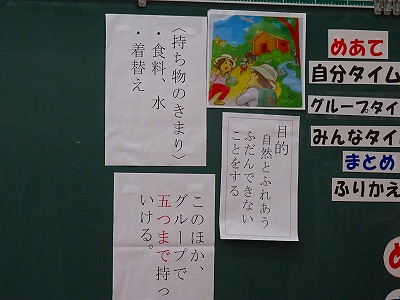 〈持ち物のきまり〉
・食料、水
・着替え
目的
自然とふれあう
ふだんできない
ことをする
このほか、
グループで
五つまで持っ
いける。
めあて
自分タイム
グループタイ
みんなタイ
まとめ
ふりかえ
め